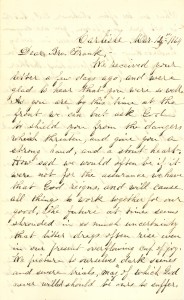 Carlisle Mar. 24th 1864
Dear Bro Frank,-
We received your
letter a few days ago, and were
glad to hear that you were so well.
As you are by this time at the
front we can but ask God
to shield you from the dangers
which threaten and give you a
strong hand, and a stout heart.
How sad we would often be if it
were not for the assurance we have
that God reigns, and will cause
all things to work together for our
good, the future at times seems
shrouded in so much uncertainty
that bitter dregs often rise even
in our present overflowing cup of joy.
We picture to ourselves dark scenes
and severe trials, many of which God
never will should be ours to suffer.